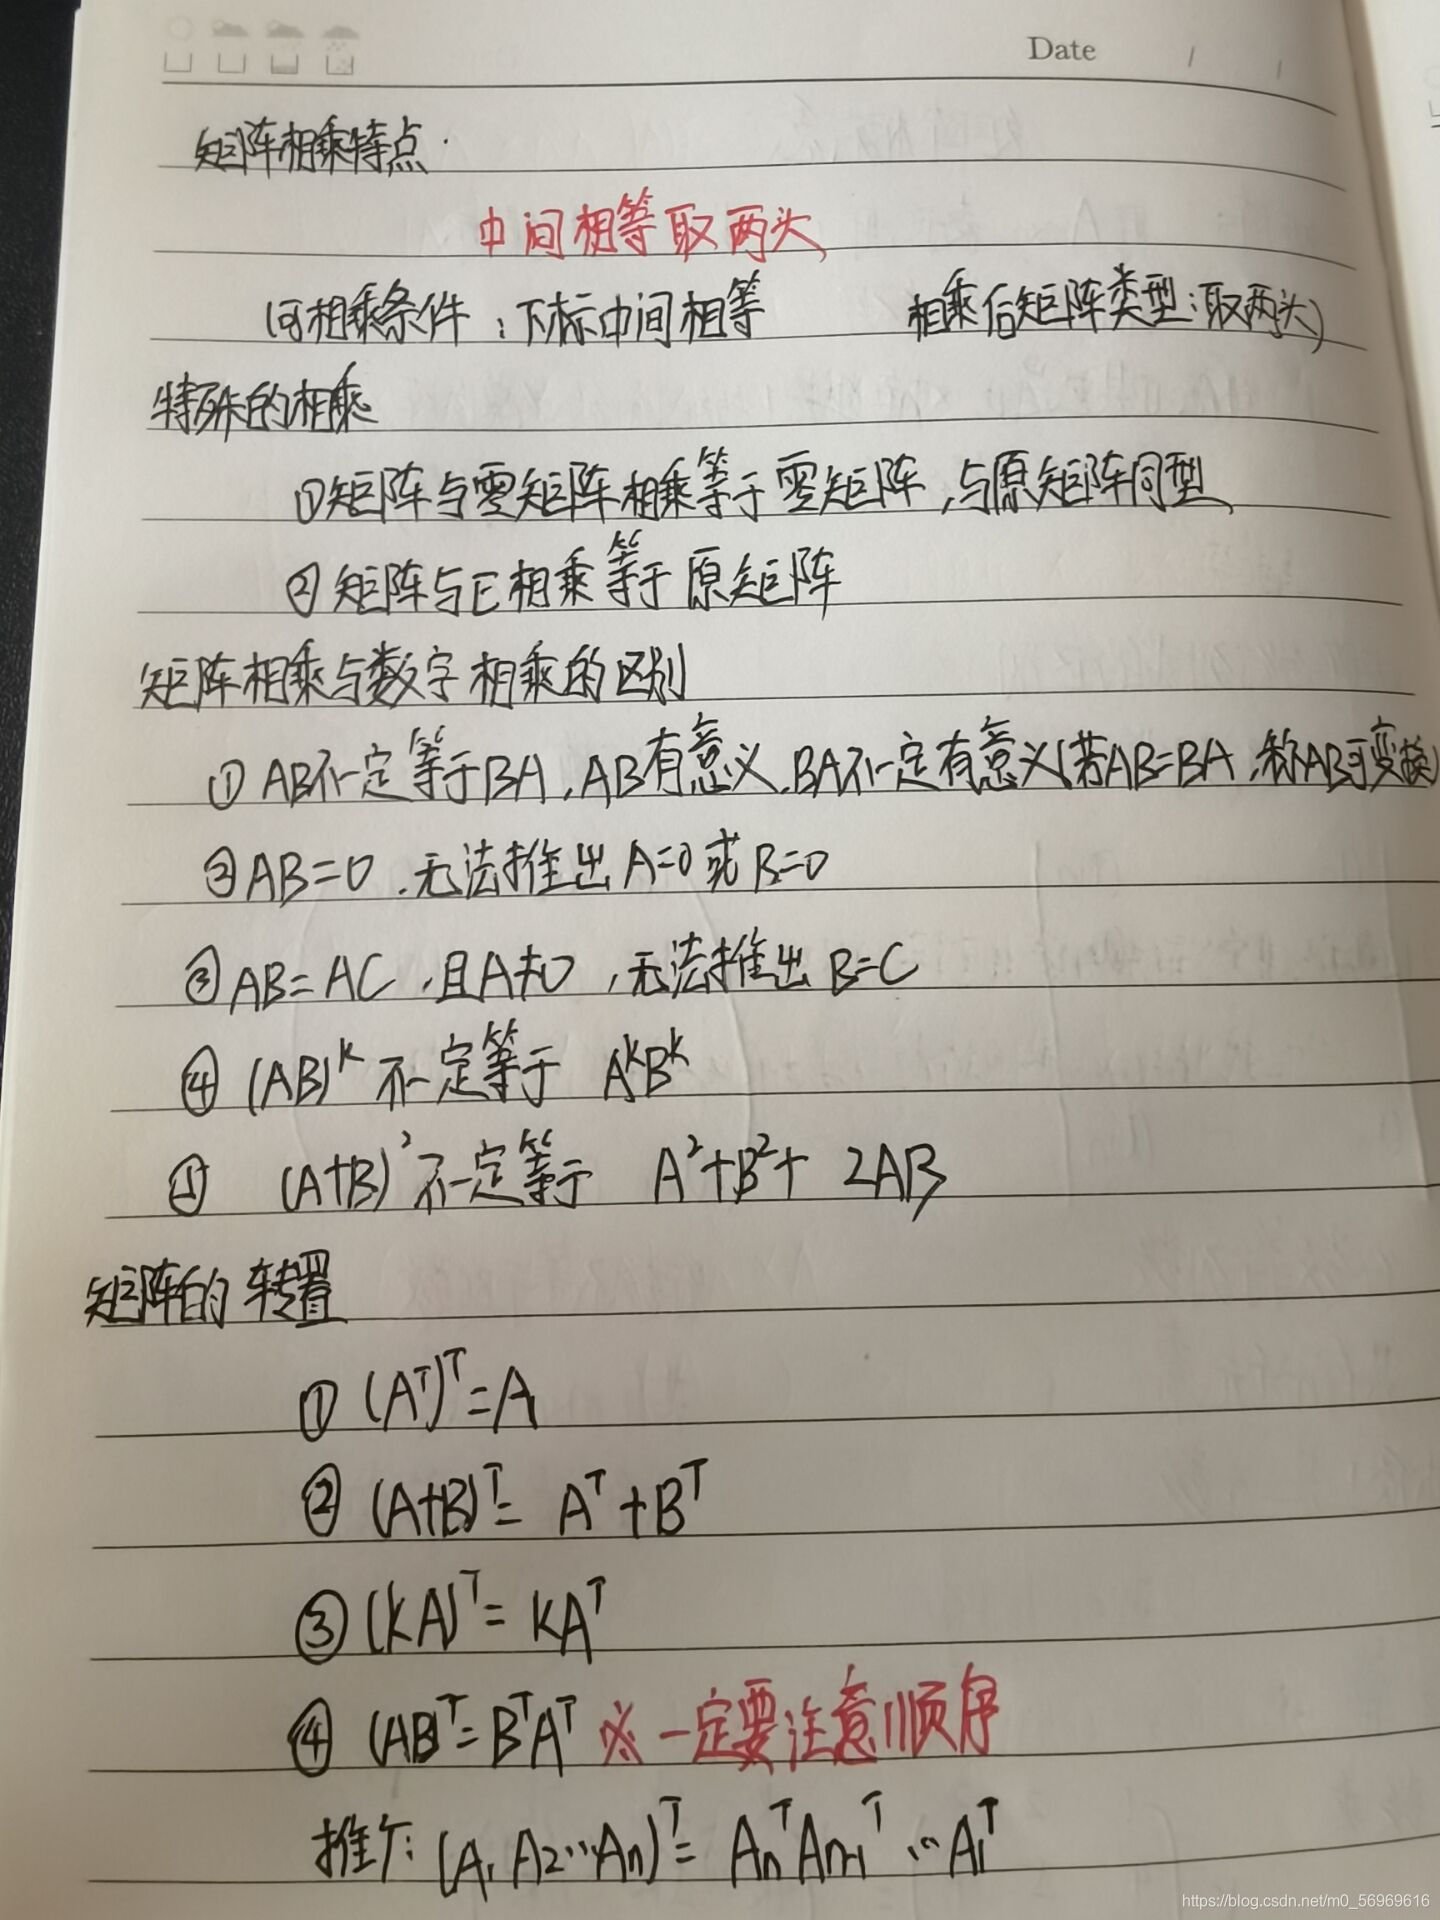 Date / /
矩阵相乘特点.
中间相等取两头
(可相乘条件：下标中间相等 相乘后矩阵类型：取两头)
特殊的相乘
①矩阵与零矩阵相乘等于零矩阵，与原矩阵同型
②矩阵与E相乘等于原矩阵
矩阵相乘与数字相乘的区别
①AB不一定等于BA，AB有意义，BA不一定有意义(若AB=BA，称AB可变换)
②AB=0，无法推出A=0或B=0
③AB=AC，且A≠0，无法推出B=C
④(AB)ᵏ不一定等于 AᵏBᵏ
⑤ (A+B)²不一定等于 A²+B²+2AB
矩阵的转置
①(Aᵀ)ᵀ=A
②(A+B)ᵀ=Aᵀ+Bᵀ
③(kA)ᵀ=kAᵀ
④(AB)ᵀ=BᵀAᵀ ※一定要注意顺序
推广：(A₁A₂…Aₙ)ᵀ=AₙᵀAₙ₋₁ᵀ…A₁ᵀ
https://blog.csdn.net/m0_56969616